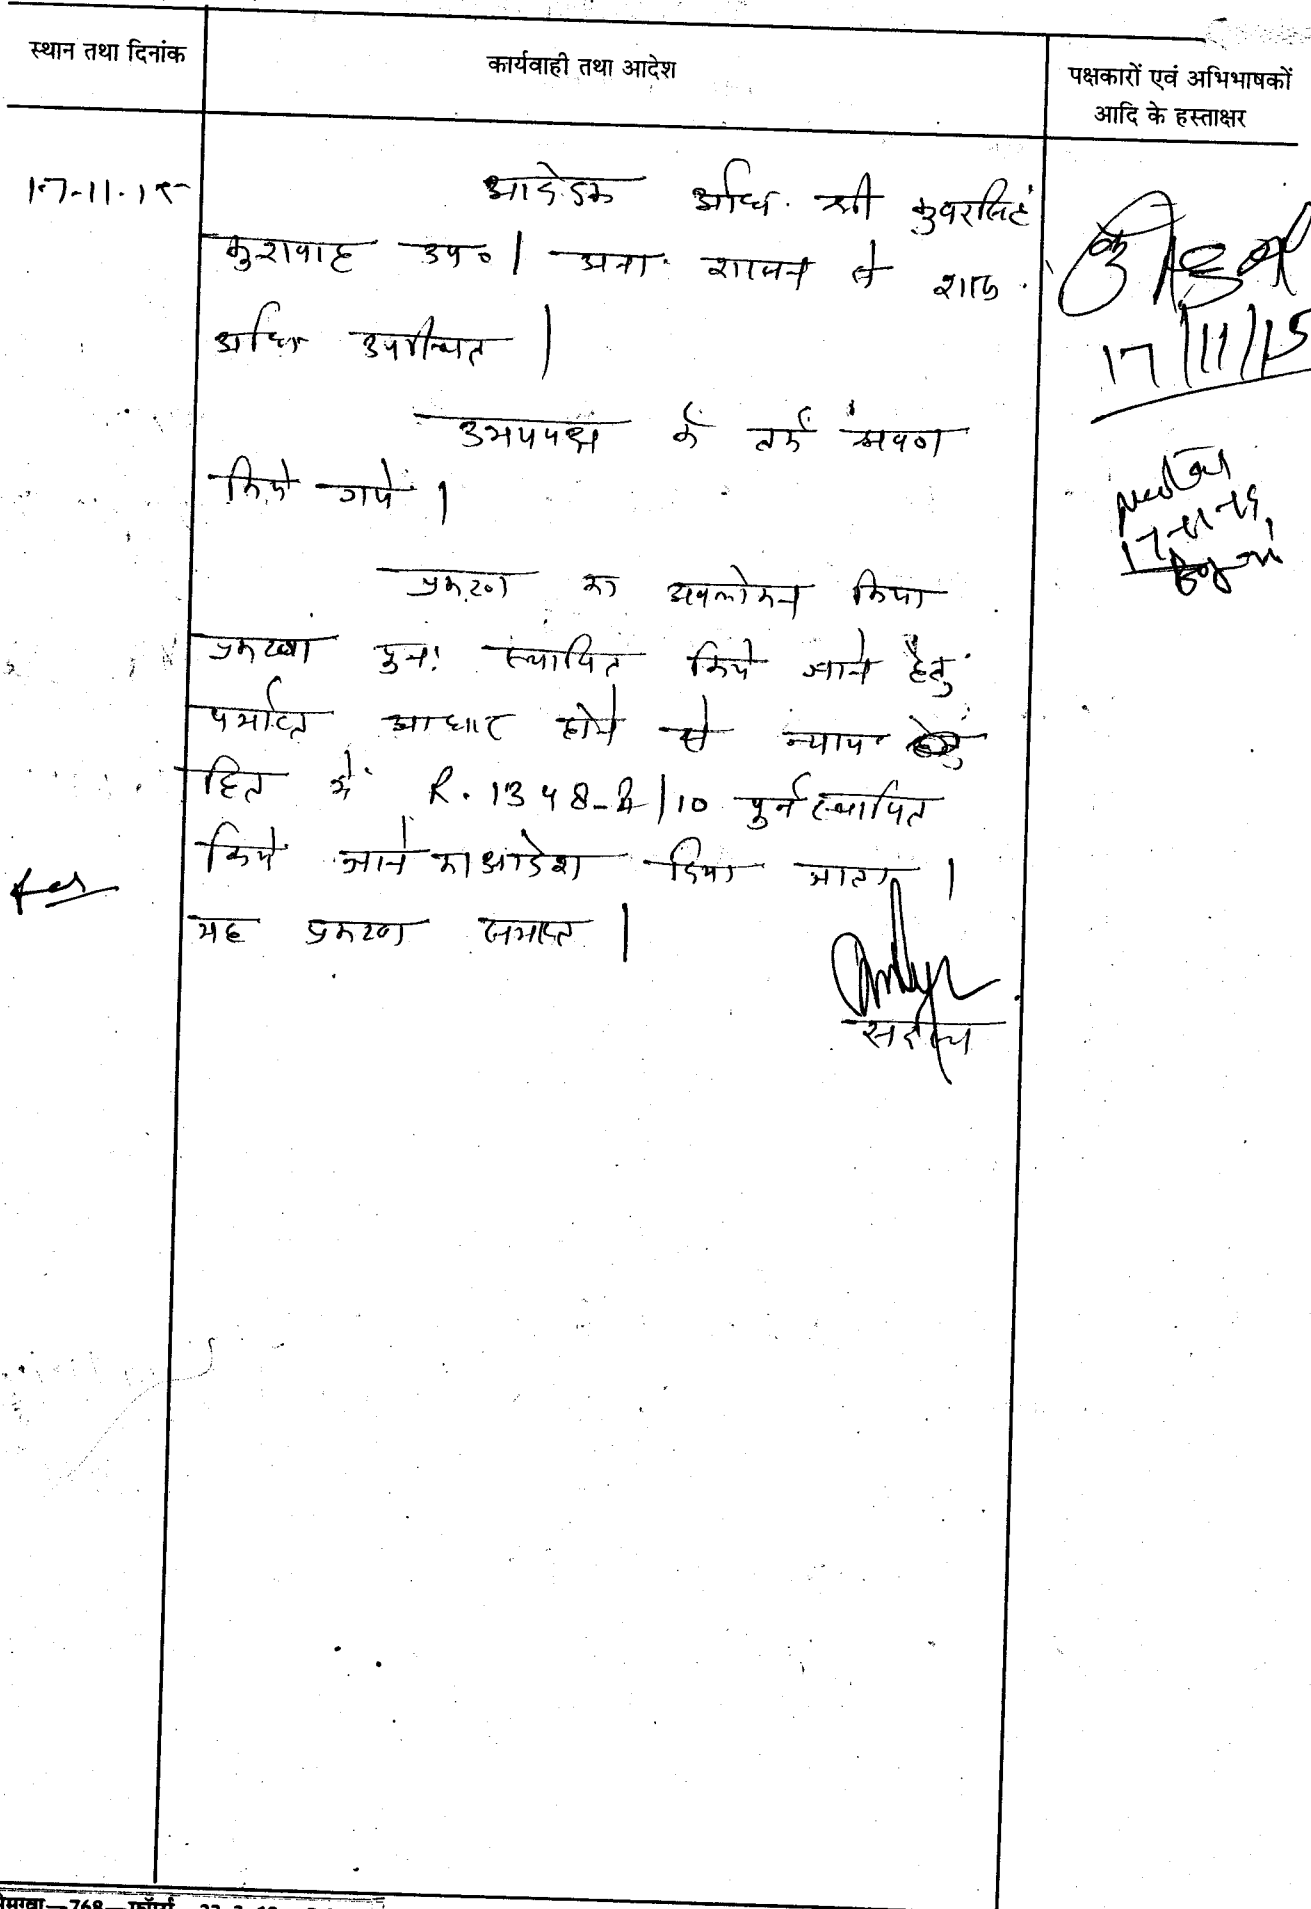 स्थान तथा दिनांक
कार्यवाही तथा आदेश
पक्षकारों एवं अभिभाषकों
आदि के हस्ताक्षर
17-11-15
आवेदक अभि. श्री कुवरसिंह
कुशवाह उप०। अना. शासन से शास.
अभि. उपस्थित।
उभयपक्ष के तर्क श्रवण
किये गये।
प्रकरण का अवलोकन किया
प्रकरण पुनः स्थापित किये जाने हेतु
पर्याप्त आधार होने से न्याय
हित में R. 1348- /10 पुर्नस्थापित
किये जाने का आदेश दिया जाता।
यह प्रकरण समाप्त।
सदस्य
17/11/15
17-11-15
768